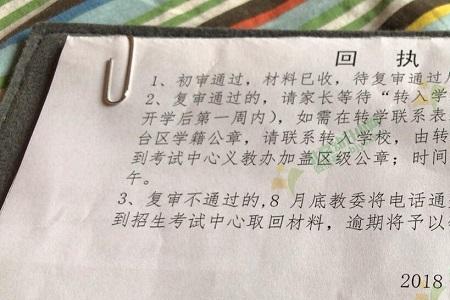 回 执
1、初审通过，材料已收，待复审通过
2、复审通过的，请家长等待“转入学
开学后第一周内），如需在转学联系表
台区学籍公章，请联系转入学校，由转
到考试中心义教办加盖区级公章；时间
午。
3、复审不通过的,8 月底教委将电话通
到招生考试中心取回材料，逾期将予以
2018